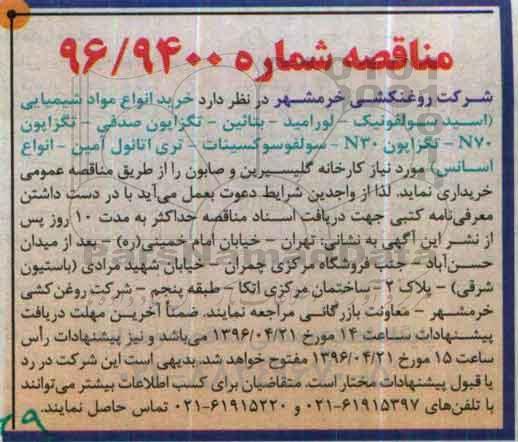 مناقصه شماره ۹۶/۹۴۰۰
شرکت روغنکشی خرمشهر در نظر دارد خرید انواع مواد شیمیایی
(اسید سولفونیک - لورامید - بتائین - تگزاپون صدفی - تگزاپون
N۷۰ - تگزاپون N۳۰ - سولفوسوکسینات - تری اتانول آمین - انواع
اسانس) مورد نیاز کارخانه گلیسیرین و صابون را از طریق مناقصه عمومی
خریداری نماید. لذا از واجدین شرایط دعوت بعمل می‌آید با در دست داشتن
معرفی‌نامه کتبی جهت دریافت اسناد مناقصه حداکثر به مدت ۱۰ روز پس
از نشر این آگهی به نشانی: تهران - خیابان امام خمینی(ره) - بعد از میدان
حسن‌آباد - جنب فروشگاه مرکزی چمران - خیابان شهید مرادی (باستیون
شرقی) - پلاک ۲ - ساختمان مرکزی اتکا - طبقه پنجم - شرکت روغن کشی
خرمشهر - معاونت بازرگانی مراجعه نمایند. ضمناً آخرین مهلت دریافت
پیشنهادات ساعت ۱۴ مورخ ۱۳۹۶/۰۴/۲۱ می‌باشد و نیز پیشنهادات رأس
ساعت ۱۵ مورخ ۱۳۹۶/۰۴/۲۱ مفتوح خواهد شد. بدیهی است این شرکت در رد
یا قبول پیشنهادات مختار است. متقاضیان برای کسب اطلاعات بیشتر می‌توانند
با تلفن‌های ۶۱۹۱۵۳۹۷-۰۲۱ و ۶۱۹۱۵۲۲۰-۰۲۱ تماس حاصل نمایند.